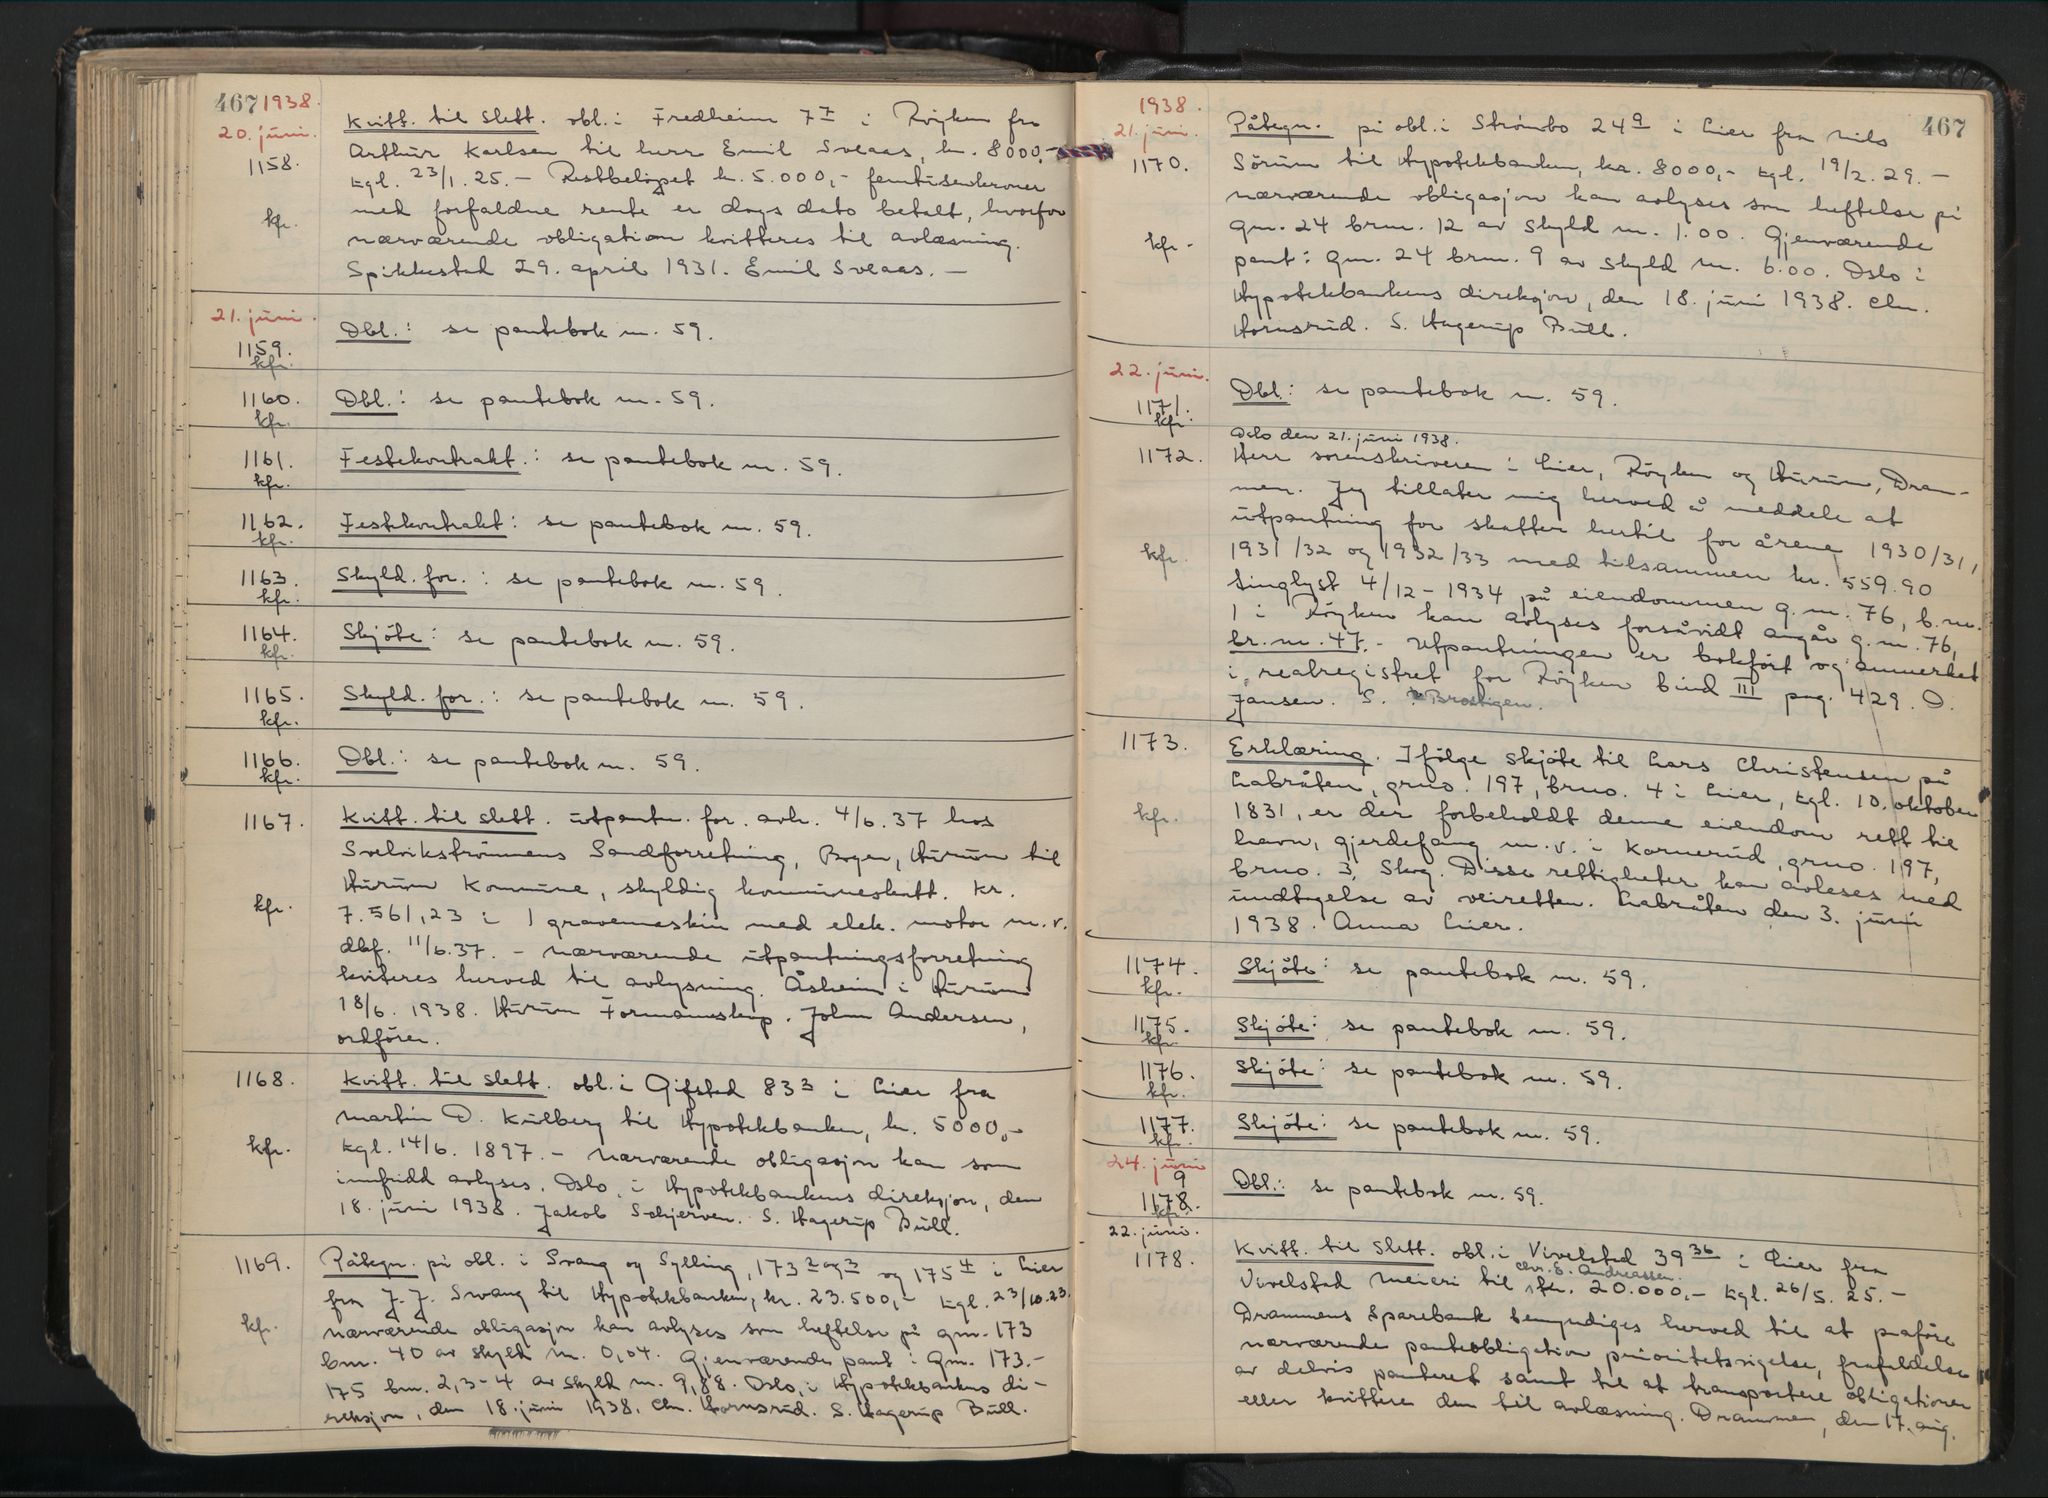 467 1938.
20. juni.
1158.
kfr.
Kvitt. til slett. obl. i Fredheim 7 7 i Röyken fra
Arthur Karlsen til herr Emil Sveaas, kr. 8000,-
tgl. 23/1. 25. – Restbelöpet kr. 5.000,- femtusenkroner
med forfaldne rente er dags dato betalt, hvorfor
nærværende obligation kvitteres til avlæsning.
Spikkestad 29. april 1931. Emil Sveaas. –
21. juni.
1159.
kfr.
Obl.: se pantebok nr. 59.
1160.
kfr.
Obl.: se pantebok nr. 59.
1161.
kfr.
Festekontrakt.: se pantebok nr. 59.
1162.
kfr.
Festekontrakt: se pantebok nr. 59.
1163.
kfr.
Skyld. for.: se pantebok nr. 59.
1164.
kfr.
Skjöte: se pantebok nr. 59.
1165.
kfr.
Skyld. for.: se pantebok nr. 59.
1166.
kfr.
Obl.: se pantebok nr. 59.
1167.
kfr.
Kvitt. til slett. utpantn. for. avh. 4/6. 37 hos
Svelvikströmmens Sandforretning, Bogen, Hurum til
Hurum Kommune, skyldig kommuneskatt. Kr.
7.561,23 i 1 gravemaskin med elek. motor m.v.
dbf. 11/6.37. – Nærværende utpantningsforretning
kviteres herved til avlysning. Åsheim i Hurum
18/6. 1938. Hurum Formannskap. John Andersen,
ordförer.
1168.
kfr.
Kvitt. til slett. obl. i Gifstad 83 3 i Lier fra
Martin D. Kulberg til Hypotekbanken, kr. 5000,-
tgl. 14/6. 1897. – Nærværende obligasjon kan som
innfridd avlyses. Oslo, i Hypotekbankens direksjon, den
18. juni 1938. Jakob Schjerven. S. Hagerup Bull.
1169.
kfr.
Påtegn. på obl. i Svang og Sylling, 173 2 og 3 og 175 4 i Lier
fra J. J. Svang til Hypotekbanken, kr. 23.500,- tgl. 23/10.23.
Nærværende obligasjon kan avlyses som heftelse på gnr. 173
bnr. 40 av skyld m. 0,04. Gjenværende pant: Gnr. 173.-
175 bnr. 2,3-4 av skyld m. 9,88. Oslo, i Hypotekbankens di-
reksjon, den 18. juni 1938. Chr. Hornsrud. S. Hagerup Bull.
1938.
467
21. juni.
1170.
kfr.
Påtegn. på obl. i Strömbo 24 9 i Lier fra Nils
Sörum til Hypotekbanken, kr. 8000,- tgl. 19/2. 29. –
Nærværende obligasjon kan avlyses som heftelse på
gnr. 24 brnr. 12 av skyld m. 1.00. Gjenværende
pant: gnr. 24 brnr. 9 av skyld m. 6.00. Oslo i
Hypotekbankens direksjon, den 18. juni 1938. Chr.
Hornsrud. S. Hagerup Bull.
22. juni.
1171.
kfr.
Obl.: se pantebok nr. 59.
Oslo den 21. juni 1938.
1172.
kfr.
Herr sorenskriveren i Lier, Röyken og Hurum, Dram-
men. Jeg tillater mig herved å meddele at
utpantning for skatter hertil for årene 1930/31,
1931/32 og 1932/33 med tilsammen kr. 559.90
tinglyst 4/12 – 1934 på eiendommen g.nr. 76, b.nr.
1 i Röyken kan avlyses forsåvidt angår g.nr. 76,
br.nr. 47. – Utpantningen er bokfört og anmerket
i realregistret for Röyken bind III pag. 429. O.
Jansen. S. Brostigen.
1173.
kfr.
Erklæring. Ifölge skjöte til Lars Christensen på
Labråten, grno. 197, brno. 4 i Lier, tgl. 10. oktober
1831, er der forbeholdt denne eiendom rett til
havn, gjerdefang m.v. i Kornerud, grno. 197,
brno. 3, Skog. Disse rettigheter kan avleses med
undtagelse av veiretten. Labråten den 3. juni
1938. Anna Lier.
1174.
kfr.
Skjöte: se pantebok nr. 59.
1175.
kfr.
Skjöte: se pantebok nr. 59.
1176.
kfr.
Skjöte: se pantebok nr. 59.
1177.
kfr.
Skjöte: se pantebok nr. 59.
24. juni
9
1178.
kfr.
Obl.: se pantebok nr. 59.
22. juni.
1178.
Kvitt. til slett. obl. i Vivelstad 39 36 i Lier fra
Chr. E. Andreassen.
Vivelstad Meieri til kr. 20.000,- tgl. 26/5. 25. –
Drammens Sparebank bemyndiges herved til at påföre
nærværende panteobligation prioritetsvigelse, frafaldelse
av delvis panteret samt til at transportere obligationen
eller kvittere den til avlæsning. Drammen, den 17. aug.